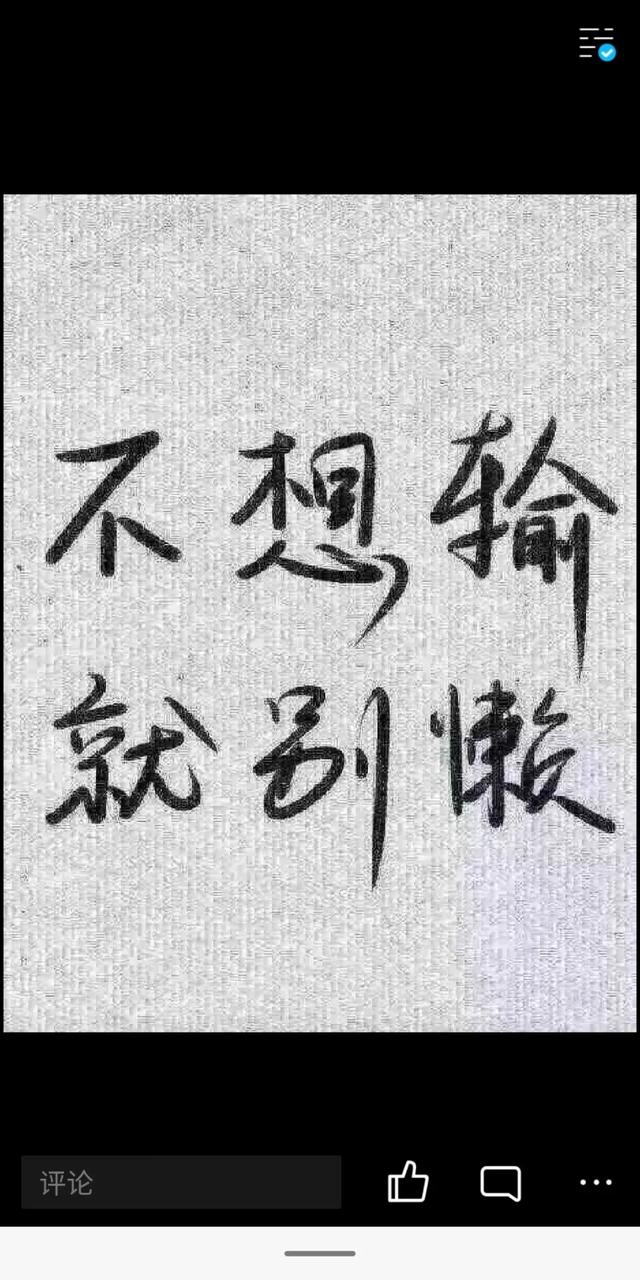 不想输
就别懒
评论